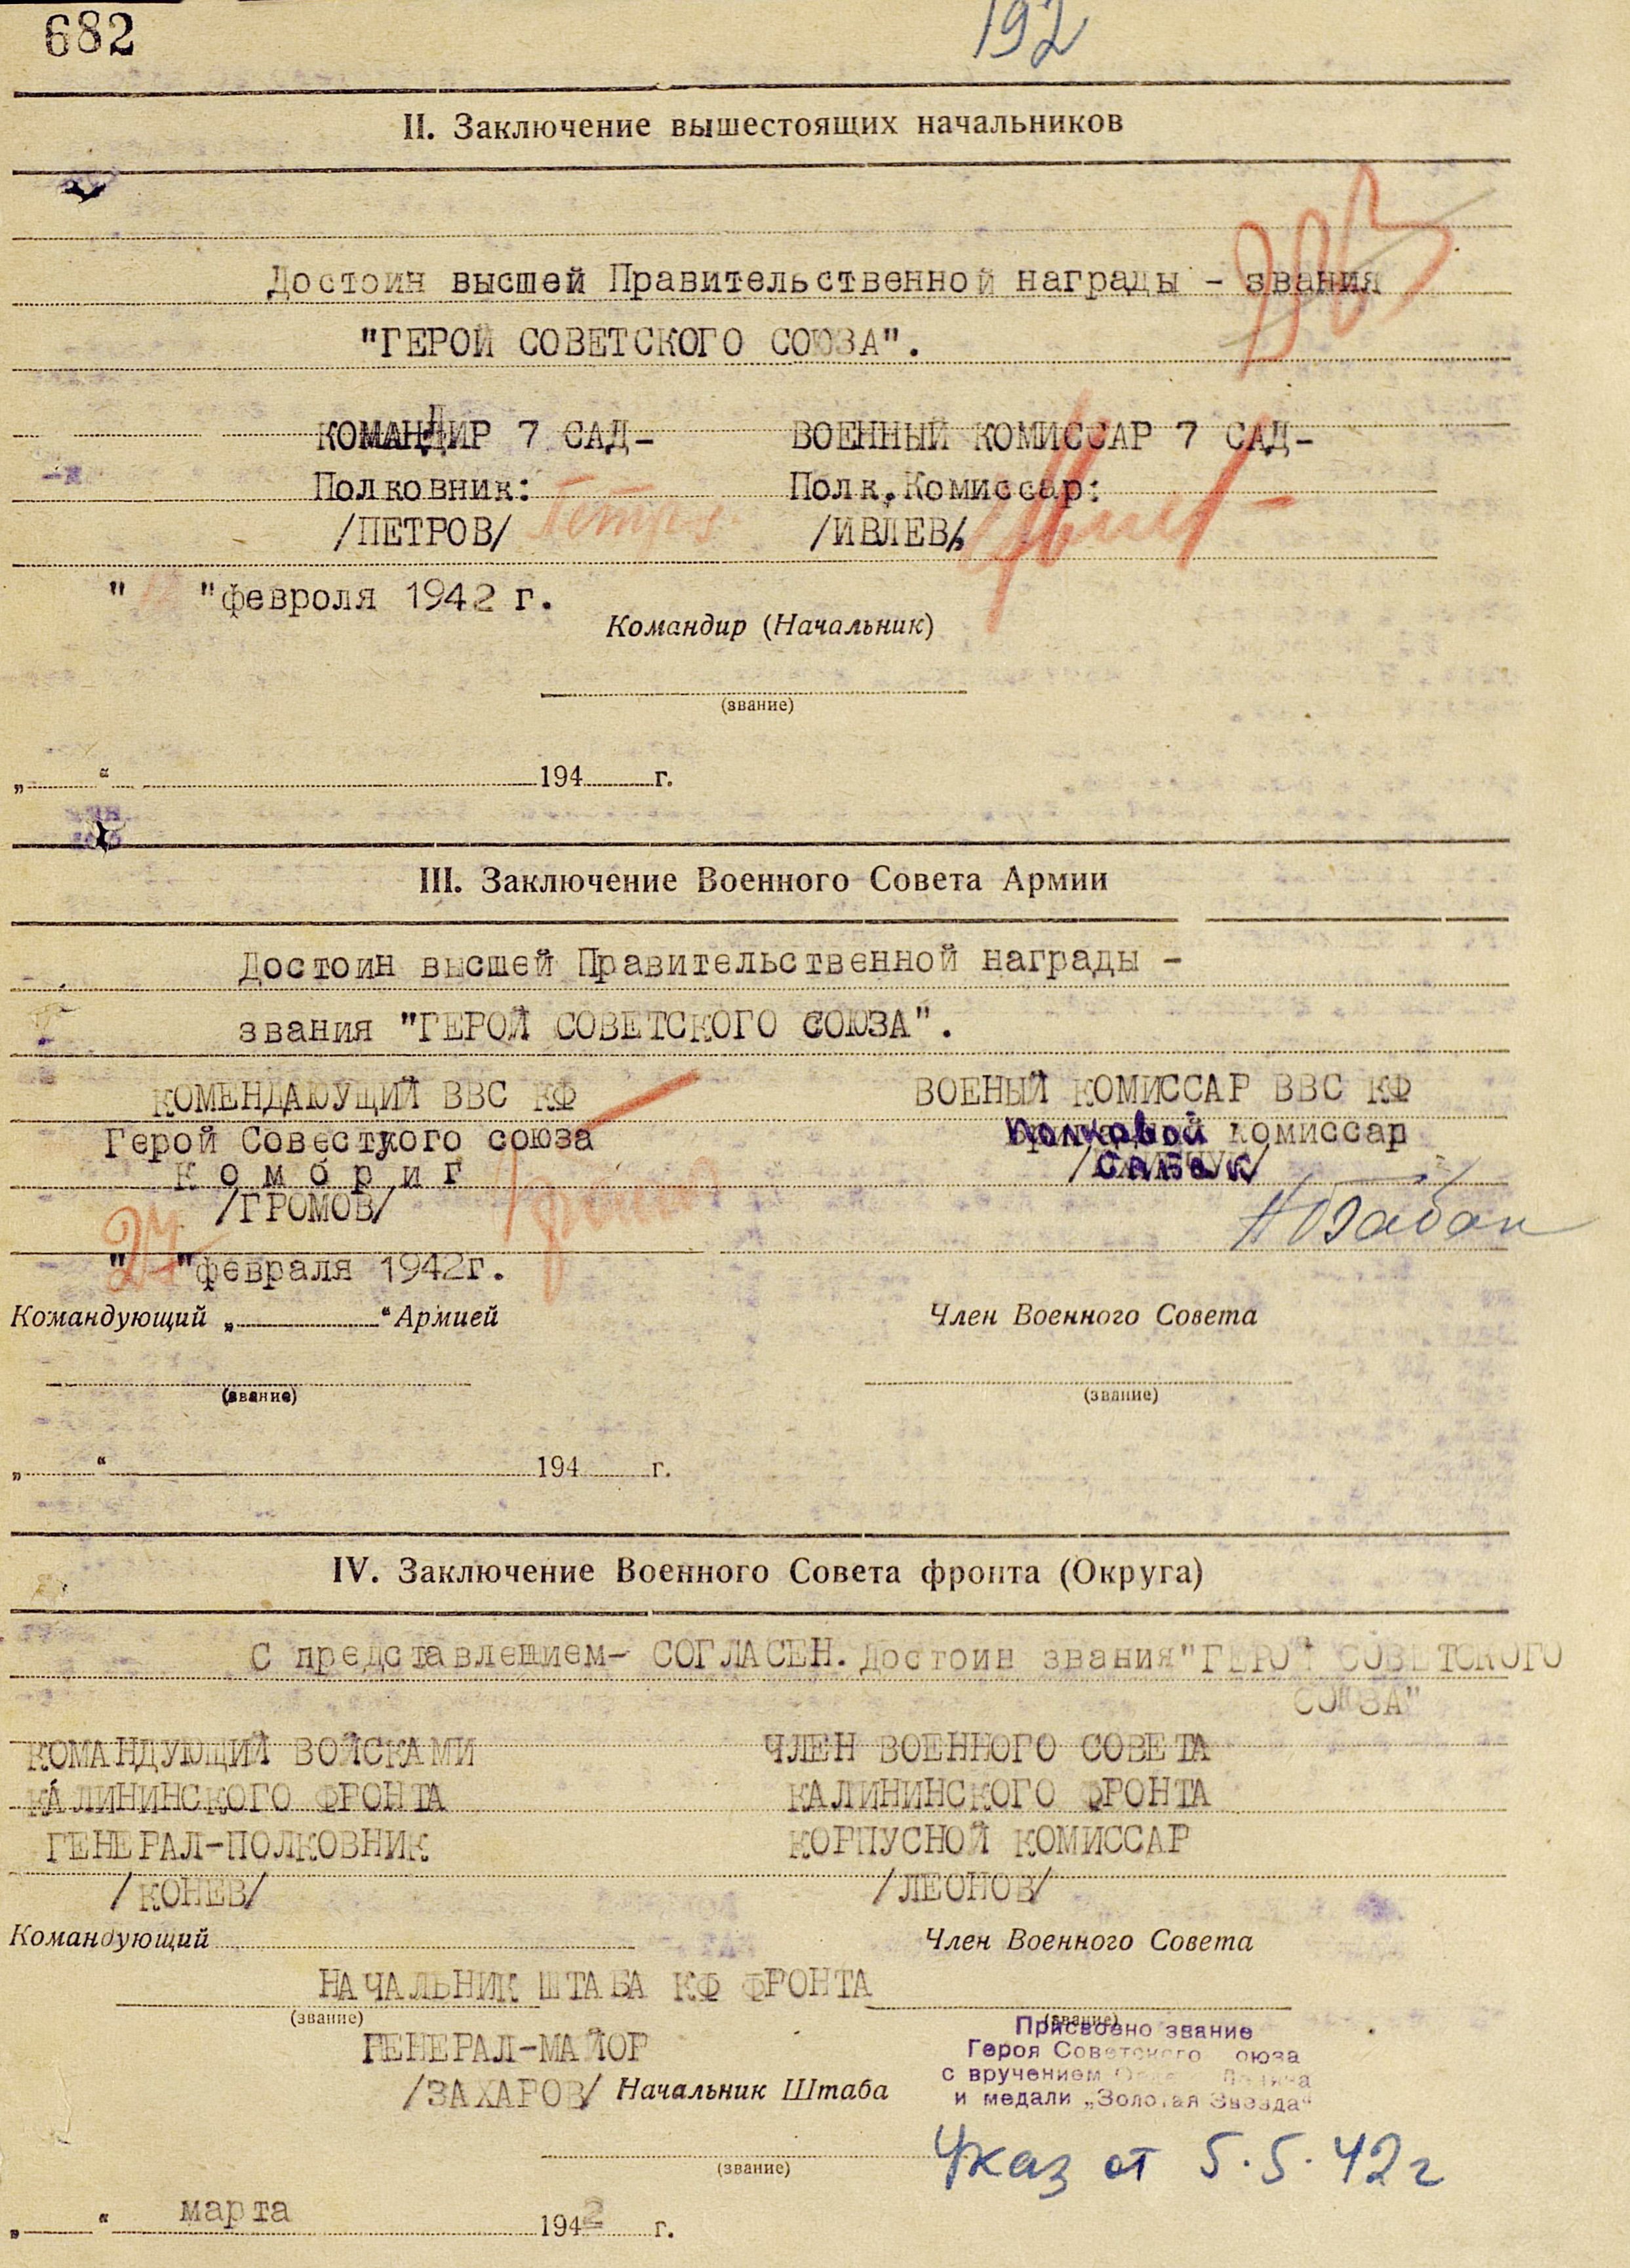 682
192
II. Заключение вышестоящих начальников
Достоин высшей Правительственной награды - звания
"ГЕРОЙ СОВЕТСКОГО СОЮЗА".
КОМАНДИР 7 САД- ВОЕННЫЙ КОМИССАР 7 САД-
Полковник: Полк.Комиссар:
/ПЕТРОВ/ /ИВЛЕВ/
" "февроля 1942 г.
Командир (Начальник)
(звание)
„ “ 194 г.
III. Заключение Военного Совета Армии
Достоин высшей Правительственной награды -
звания "ГЕРОЙ СОВЕТСКОГО СОЮЗА".
КОМЕНДАЮУЩИЙ ВВС КФ ВОЕНЫЙ КОМИССАР ВВС КФ
Герой Совесткого союза полковой комиссар
К о м б р и г
/ГРОМОВ/
"27 "февраля 1942г.
Командующий „ “ Армией Член Военного Совета
(звание) (звание)
„ “ 194 г.
IV. Заключение Военного Совета фронта (Округа)
С представлением- СОГЛАСЕН. Достоин звания "ГЕРОЙ СОВЕТСКОГО
СОЮЗА"
КОМАНДУЮЩИЙ ВОЙСКАМИ ЧЛЕН ВОЕННОГО СОВЕТА
КАЛИНИНСКОГО ФРОНТА КАЛИНИНСКОГО ФРОНТА
ГЕНЕРАЛ-ПОЛКОВНИК КОРПУСНОЙ КОМИССАР
/КОНЕВ/ /ЛЕОНОВ/
Командующий Член Военного Совета
НАЧАЛЬНИК ШТАБА КФ ФРОНТА
(звание) (звание)
ГЕНЕРАЛ-МАЙОР
/ЗАХАРОВ/ Начальник Штаба
Присвоено звание
Героя Советского Союза
с вручением Ордена Ленина
и медали „Золотая Звезда“
Указ от 5.5.42г
(звание)
„ “ марта 1942 г.